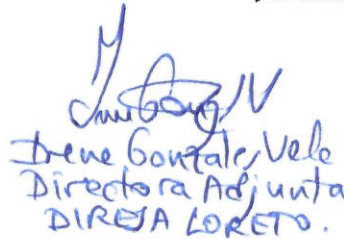 Irene Gonzales Vela
Directora Adjunta
DIRESA LORETO.